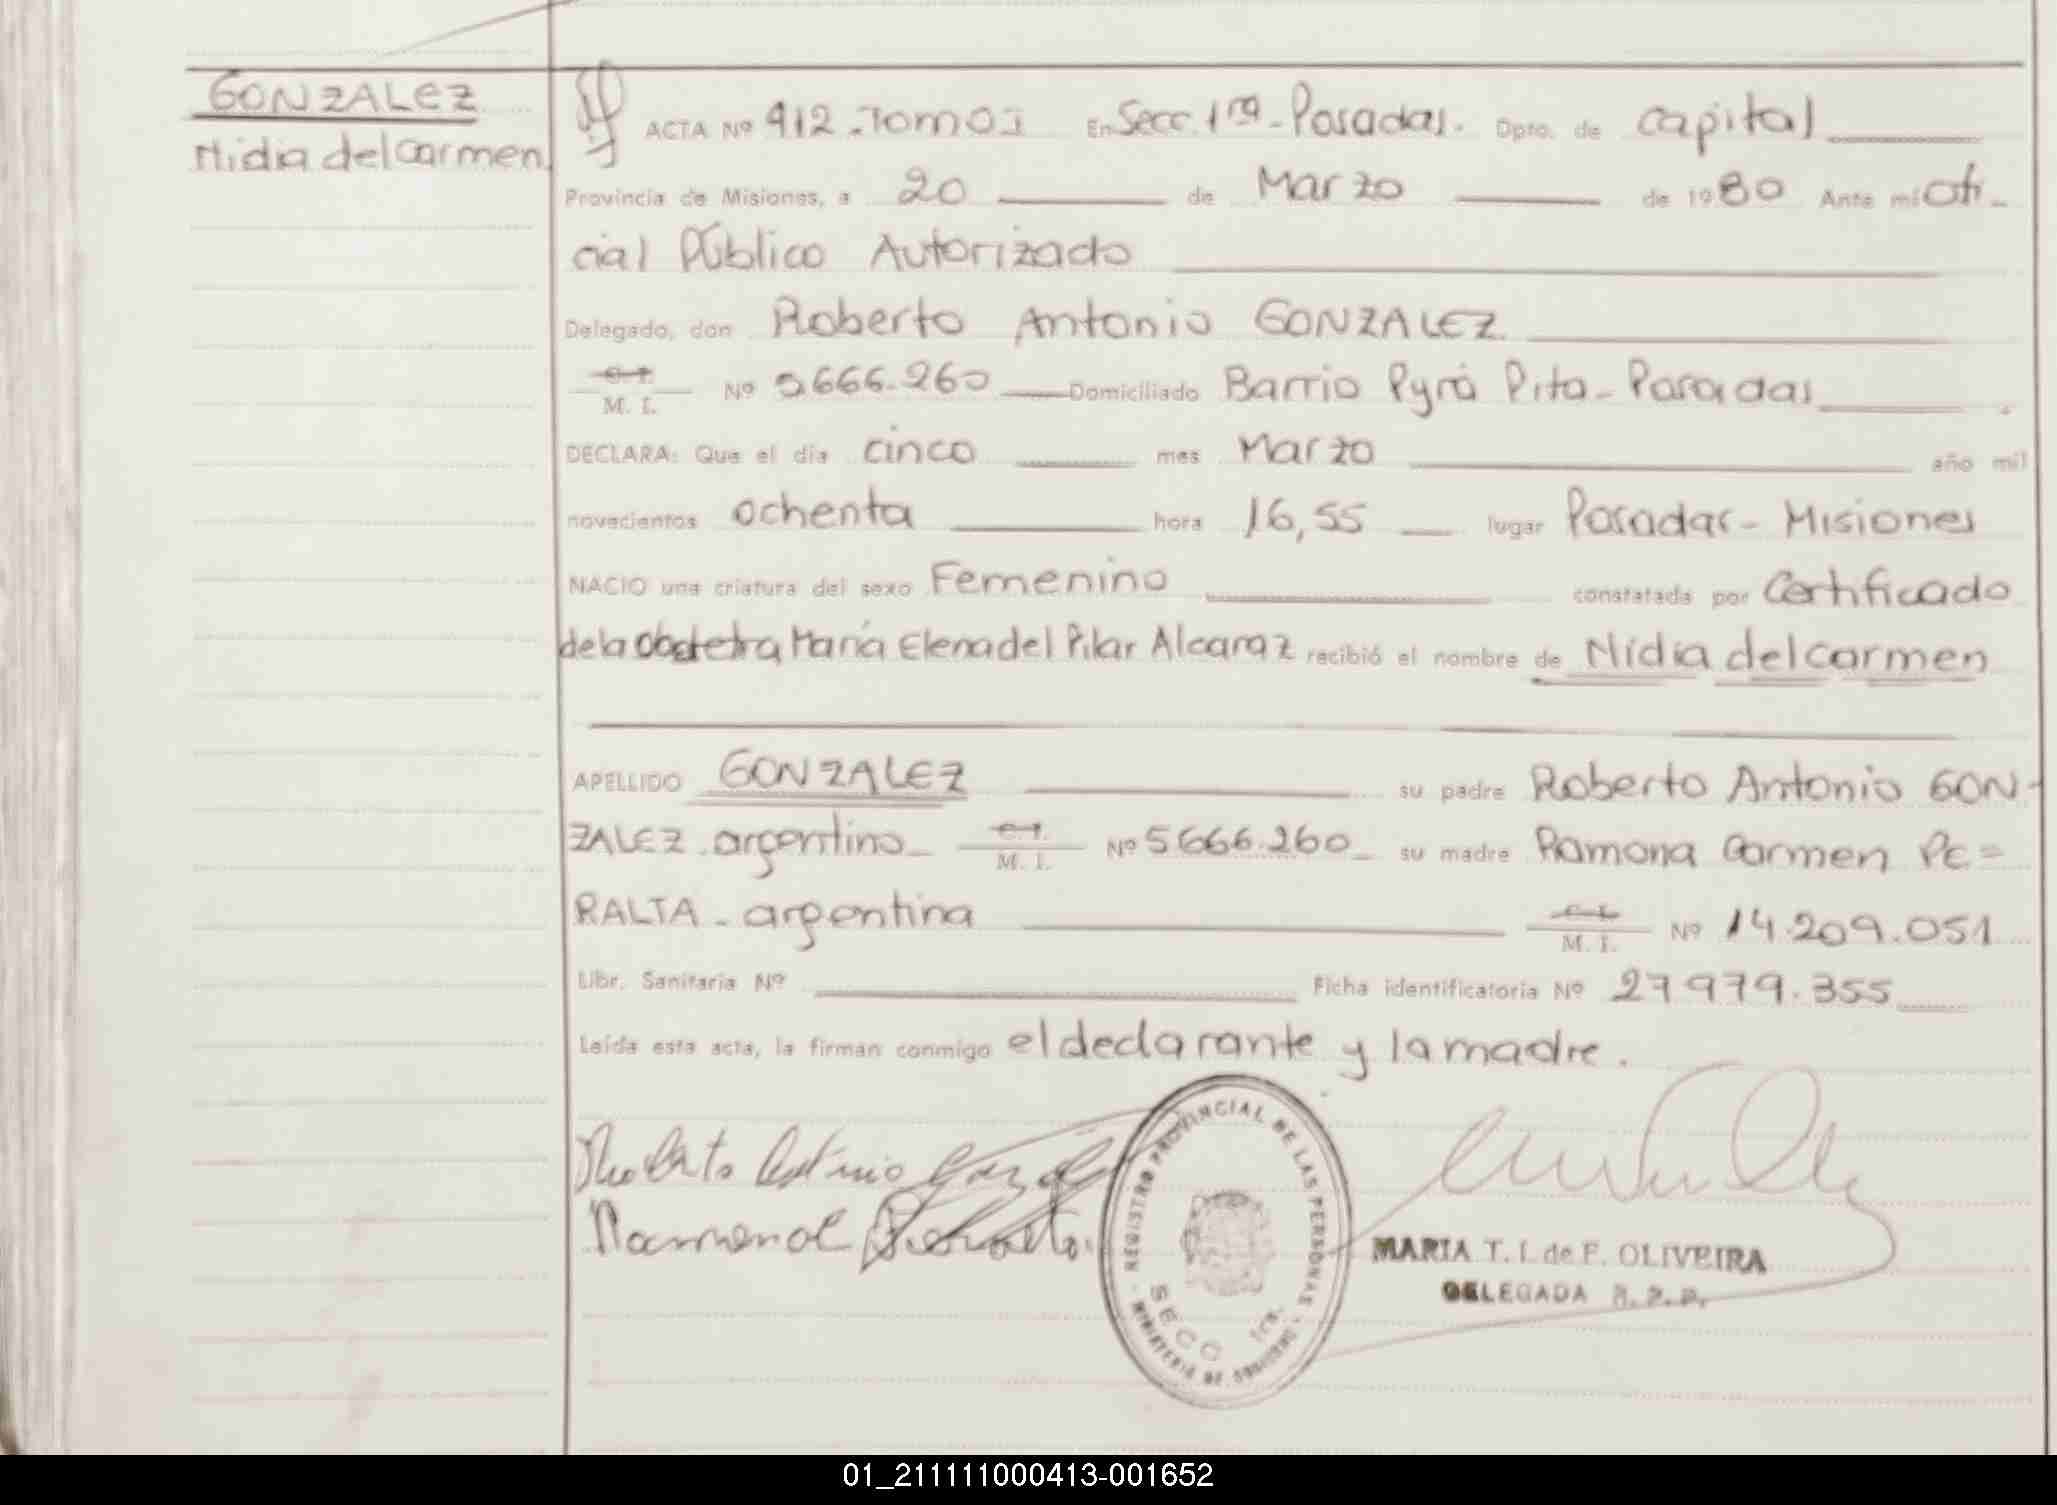 GONZALEZ
Nidia del Carmen
ACTA Nº 912 - Tomo I En Secc. 1ra - Posadas. Dpto. de Capital
Provincia de Misiones, a 20 de Marzo de 1980 Ante mí Ofi-
cial Público Autorizado
Delegado, don Roberto Antonio GONZALEZ
C. I.
M. I. Nº 5.666.260 Domiciliado Barrio Pyrá Pita - Posadas
DECLARA: Que el día cinco mes Marzo año mil
novecientos ochenta hora 16,55 lugar Posadas - Misiones
NACIO una criatura del sexo Femenino constatada por Certificado
de la Obstetra María Elena del Pilar Alcaraz recibió el nombre de Nidia del Carmen
APELLIDO GONZALEZ su padre Roberto Antonio GON-
ZALEZ - argentino - C. I.
M. I. Nº 5.666.260 - su madre Ramona Carmen PE=
RALTA - argentina C. I.
M. I. Nº 14.209.051
Libr. Sanitaria Nº Ficha identificatoria Nº 27979.355
Leída esta acta, la firman conmigo el declarante y la madre.
Roberto Antonio
REGISTRO PROVINCIAL DE LAS PERSONAS
MINISTERIO DE GOBIERNO
SECC 1ra.
MARIA T. I. de F. OLIVEIRA
DELEGADA R. P. P.
01_211111000413-001652